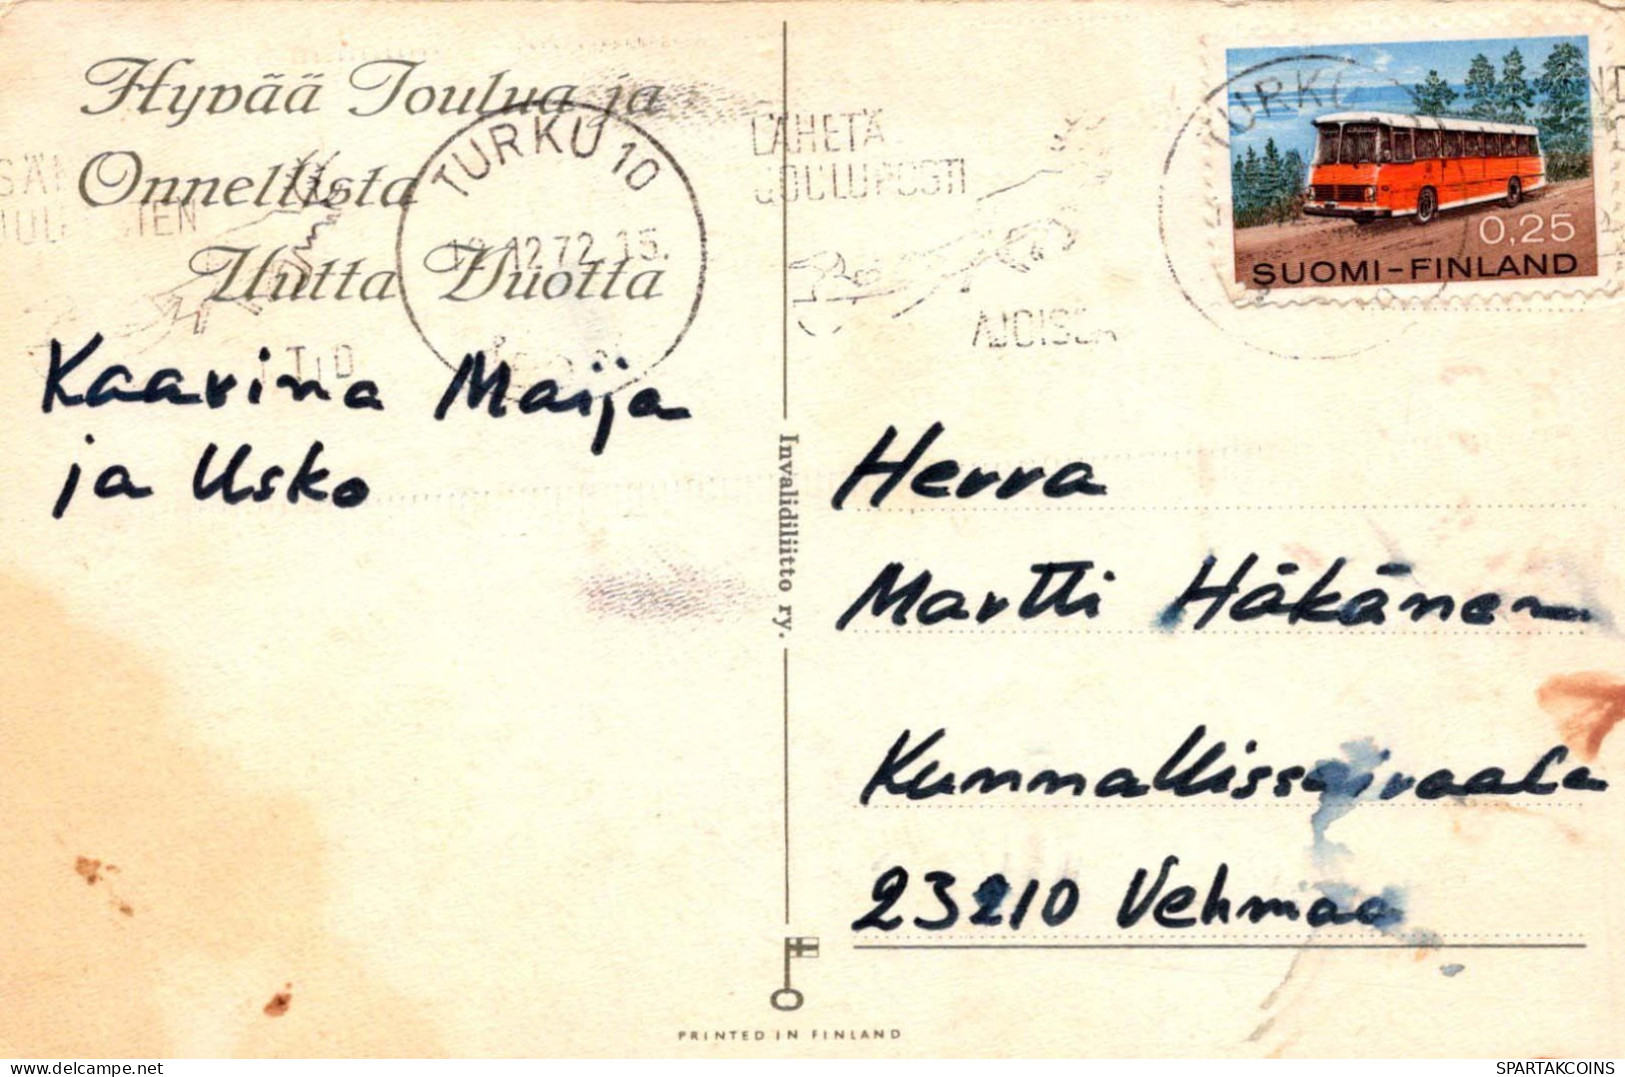 Hyvää Joulua ja
Onnellista
Uutta Vuotta
TURKU 10
12.72.15.
LÄHETÄ
JOULUPOSTI
AJOISSA
TURKU
0,25
SUOMI-FINLAND
Kaarina Maija
ja Usko
Invalidiliitto ry.
Herra
Martti Häkänen
Kunnallissairaala
23210 Vehmaa
PRINTED IN FINLAND
SPARTAKCOINS